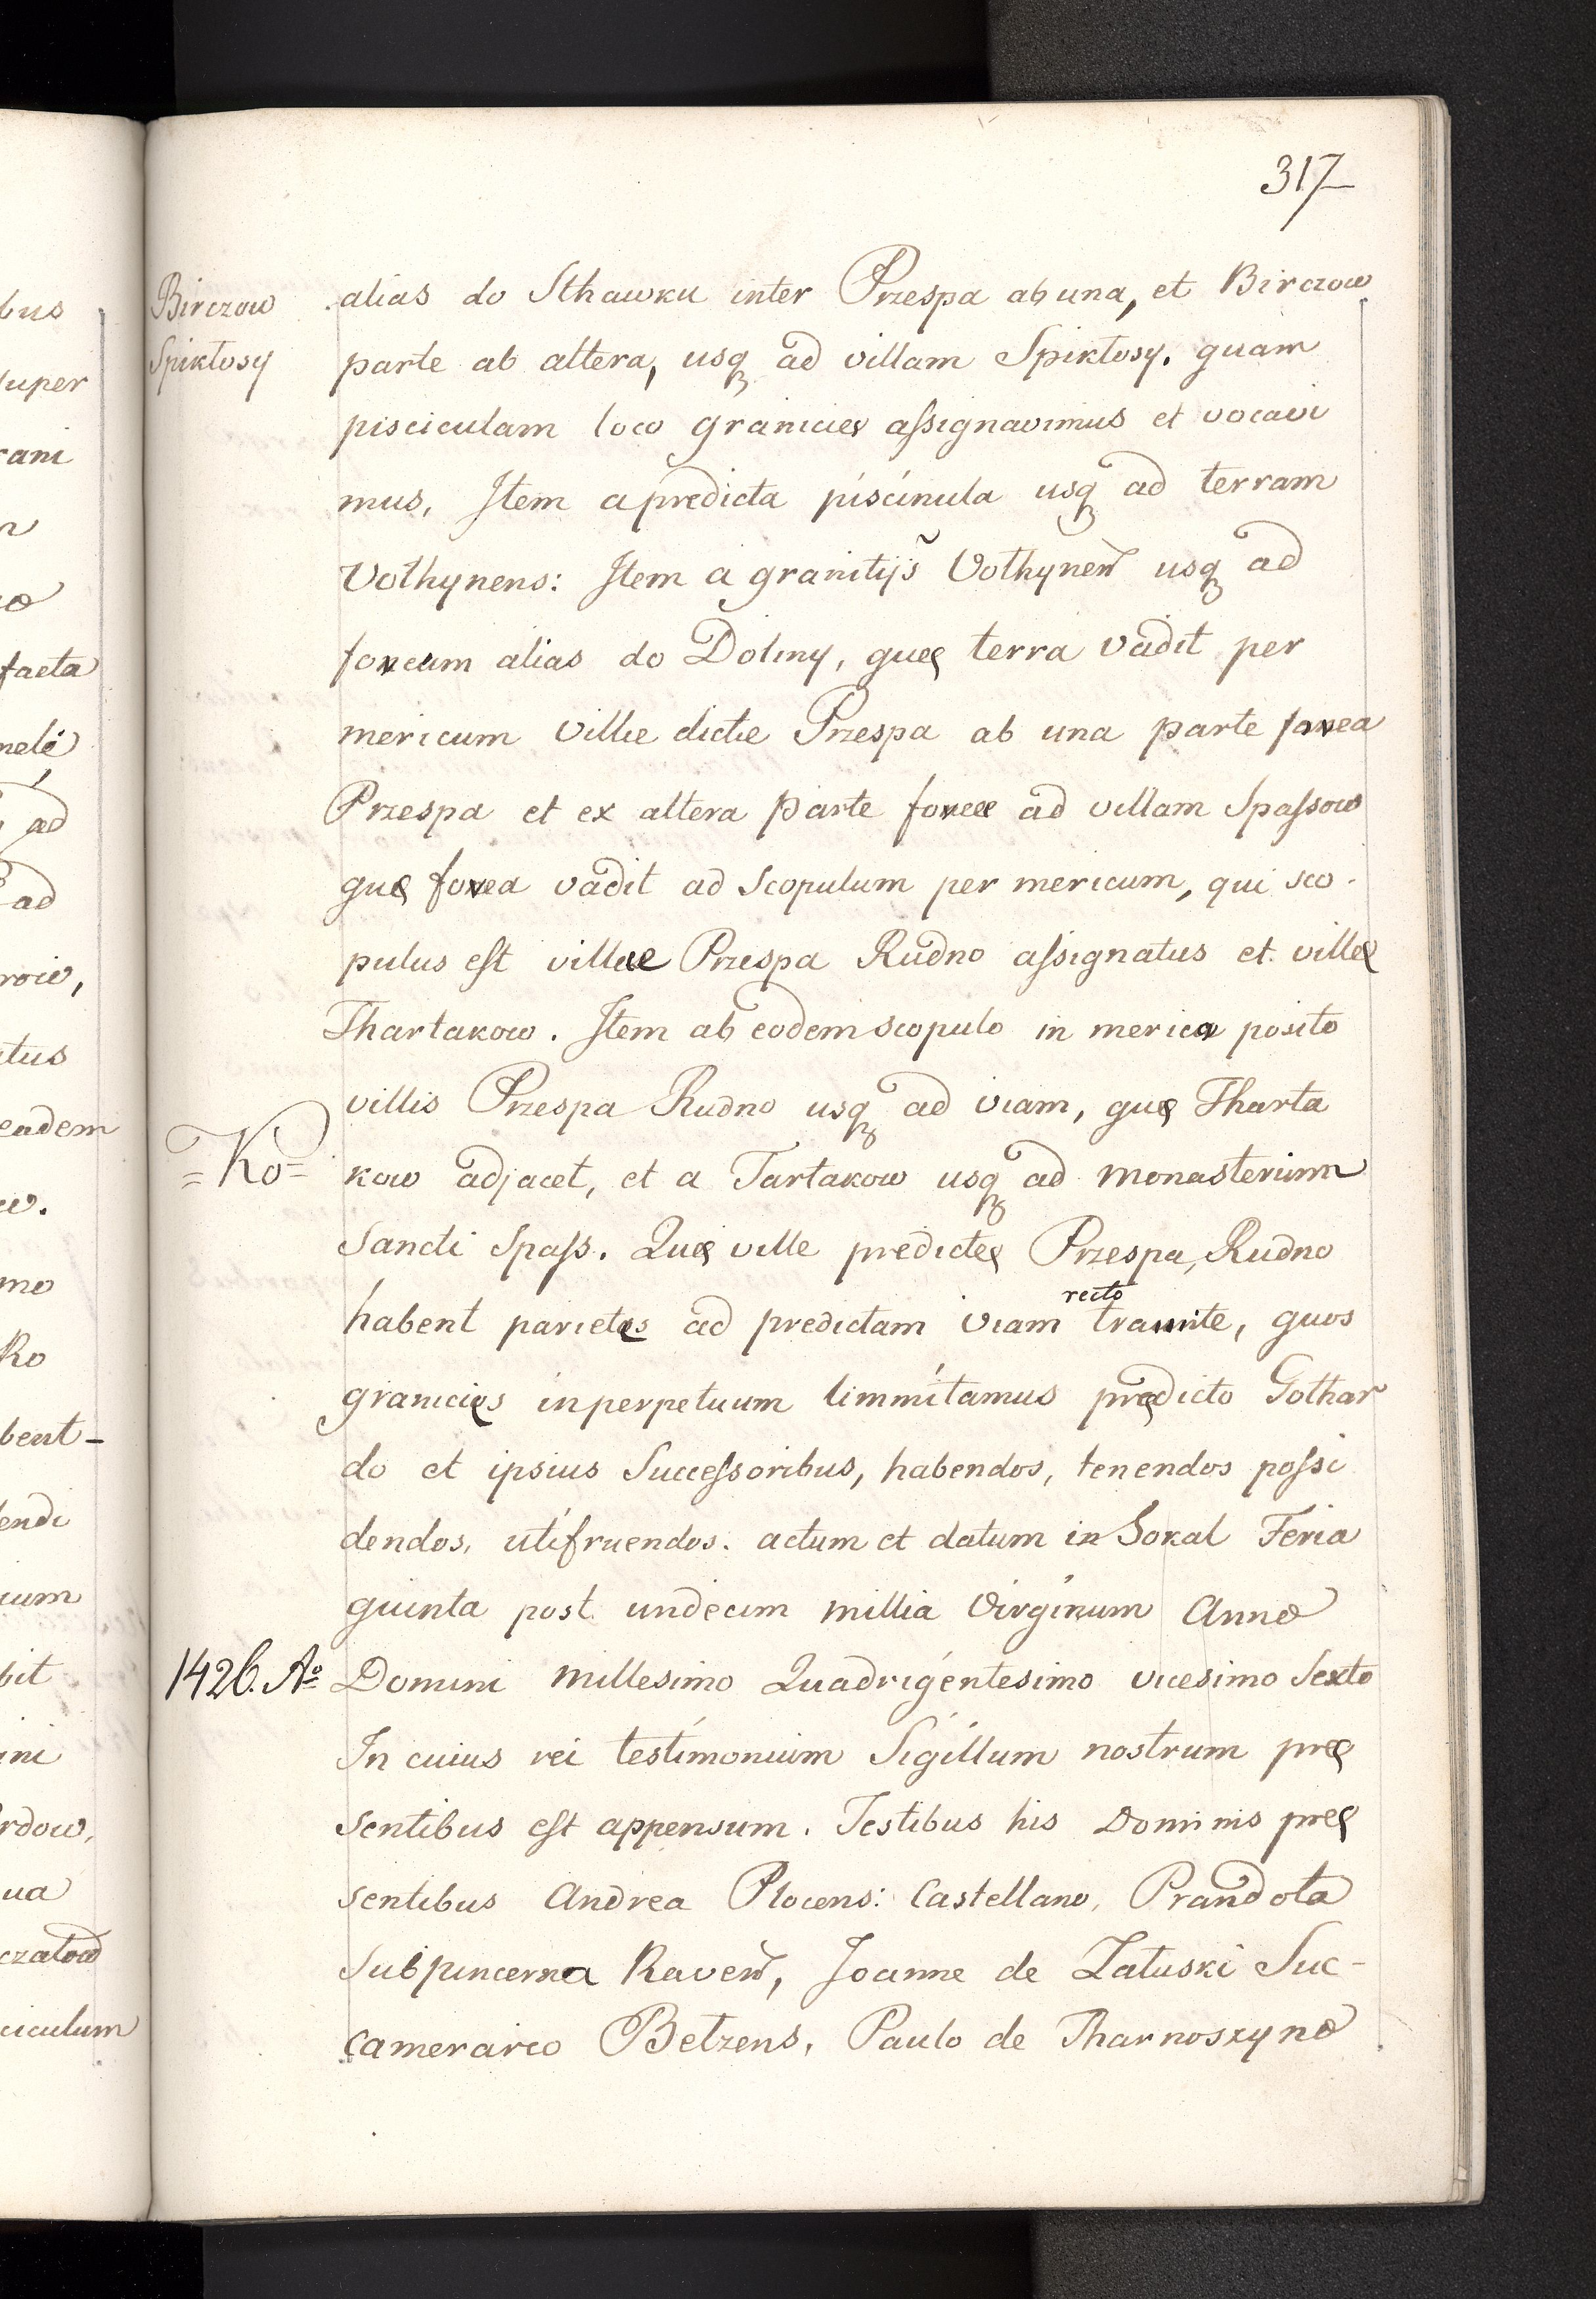 317
Birczow
Spiktosy
alias do Sthawku inter Przespa ab una, et Birczow
parte ab altera, usq₃ ad villam Spiktosy. quam
pisciculam loco granicies assignavimus et vocavi
mus, Item a predicta piscinula usq₃ ad terram
Vothynens: Item a granitijs Vothynen usq₃ ad
foveam alias do Doliny, queę terra vadit per
mericum villæ dictæ Przespa ab una parte fovea
Przespa et ex altera parte foveæ ad villam Spassow
quę fovea vadit ad scopulum per mericum, qui sco-
pulus est villæ Przespa Rudno assignatus et villę
Thartakow. Item ab eodem scopulo in merica posito
villis Przespa Rudno usq₃ ad viam, quę Tharta
=Ko=
kow adjacet, et a Tartakow usq₃ ad monasterium
Sancti Spass. Quę ville predictę Przespa, Rudno
habent parietes ad predictam viam recto tramite, quos
granicies inperpetuum limmitamus prędicto Gothar
do et ipsius Successoribus, habendos, tenendos possi
dendos, utifruendos. actum et datum in Sokal Feria
quinta post undecim millia Virginum Anno
1426. Aº
Domini millesimo Quadrigentesimo vicesimo Sexto
In cuius rei testimonium Sigillum nostrum prę
sentibus est appensum. Testibus his Dominis prę
sentibus Andrea Plocens: Castellano, Prandota
Subpincerna Raven, Joanne de Zatuski Suc-
camerario Betzens, Paulo de Tharnoszyno
bus
super
rani
n
faeta
nelé
ad
ad
roie,
tus
eadem
w.
mo
Ro
bent-
endi
ium
bit
ini
rdow,
ua
czatow
ciculum